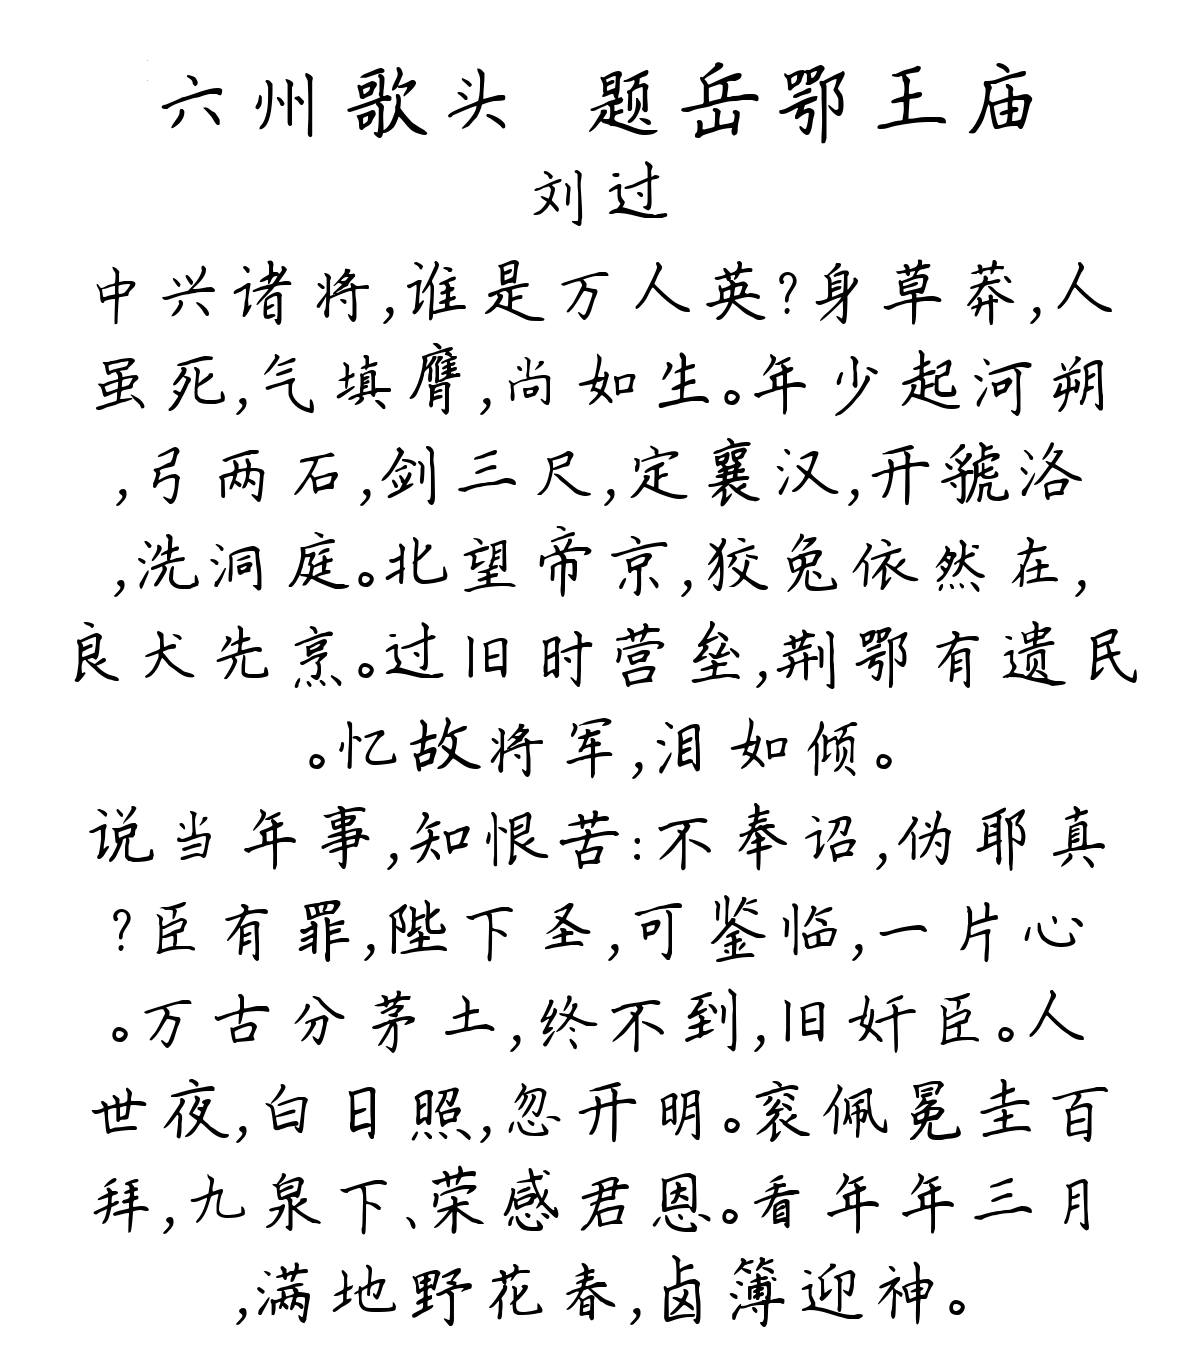 六州歌头 题岳鄂王庙
刘过
中兴诸将,谁是万人英?身草莽,人
虽死,气填膺,尚如生。年少起河朔
,弓两石,剑三尺,定襄汉,开虢洛
,洗洞庭。北望帝京,狡兔依然在,
良犬先烹。过旧时营垒,荆鄂有遗民
。忆故将军,泪如倾。
说当年事,知恨苦:不奉诏,伪耶真
?臣有罪,陛下圣,可鉴临,一片心
。万古分茅土,终不到,旧奸臣。人
世夜,白日照,忽开明。衮佩冕圭百
拜,九泉下、荣感君恩。看年年三月
,满地野花春,卤簿迎神。